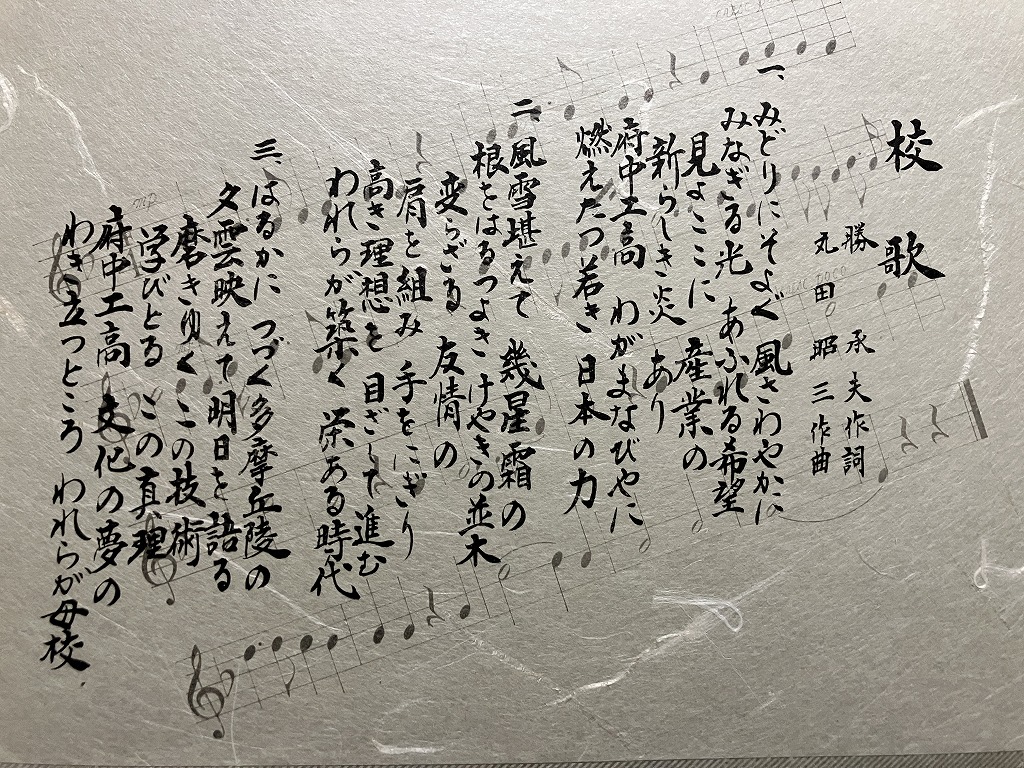 校歌
勝承夫作詞
丸田昭三作曲
一、みどりにそよぐ 風さわやかに
みなぎる光 あふれる希望
見よここに 産業の
新らしき炎 あり
府中工高 わがまなびやに
燃えたつ若き 日本の力
二、風雪堪えて 幾星霜の
根をはるつよき けやきの並木
変らざる 友情の
肩を組み 手をにぎり
高き理想を 目ざして進む
われらが築く 栄ある時代
三、はるかに つづく多摩丘陵の
夕雲映えて 明日を語る
磨きゆく この技術
学びとる この真理
府中工高 文化の夢の
わき立つところ われらが母校
mp